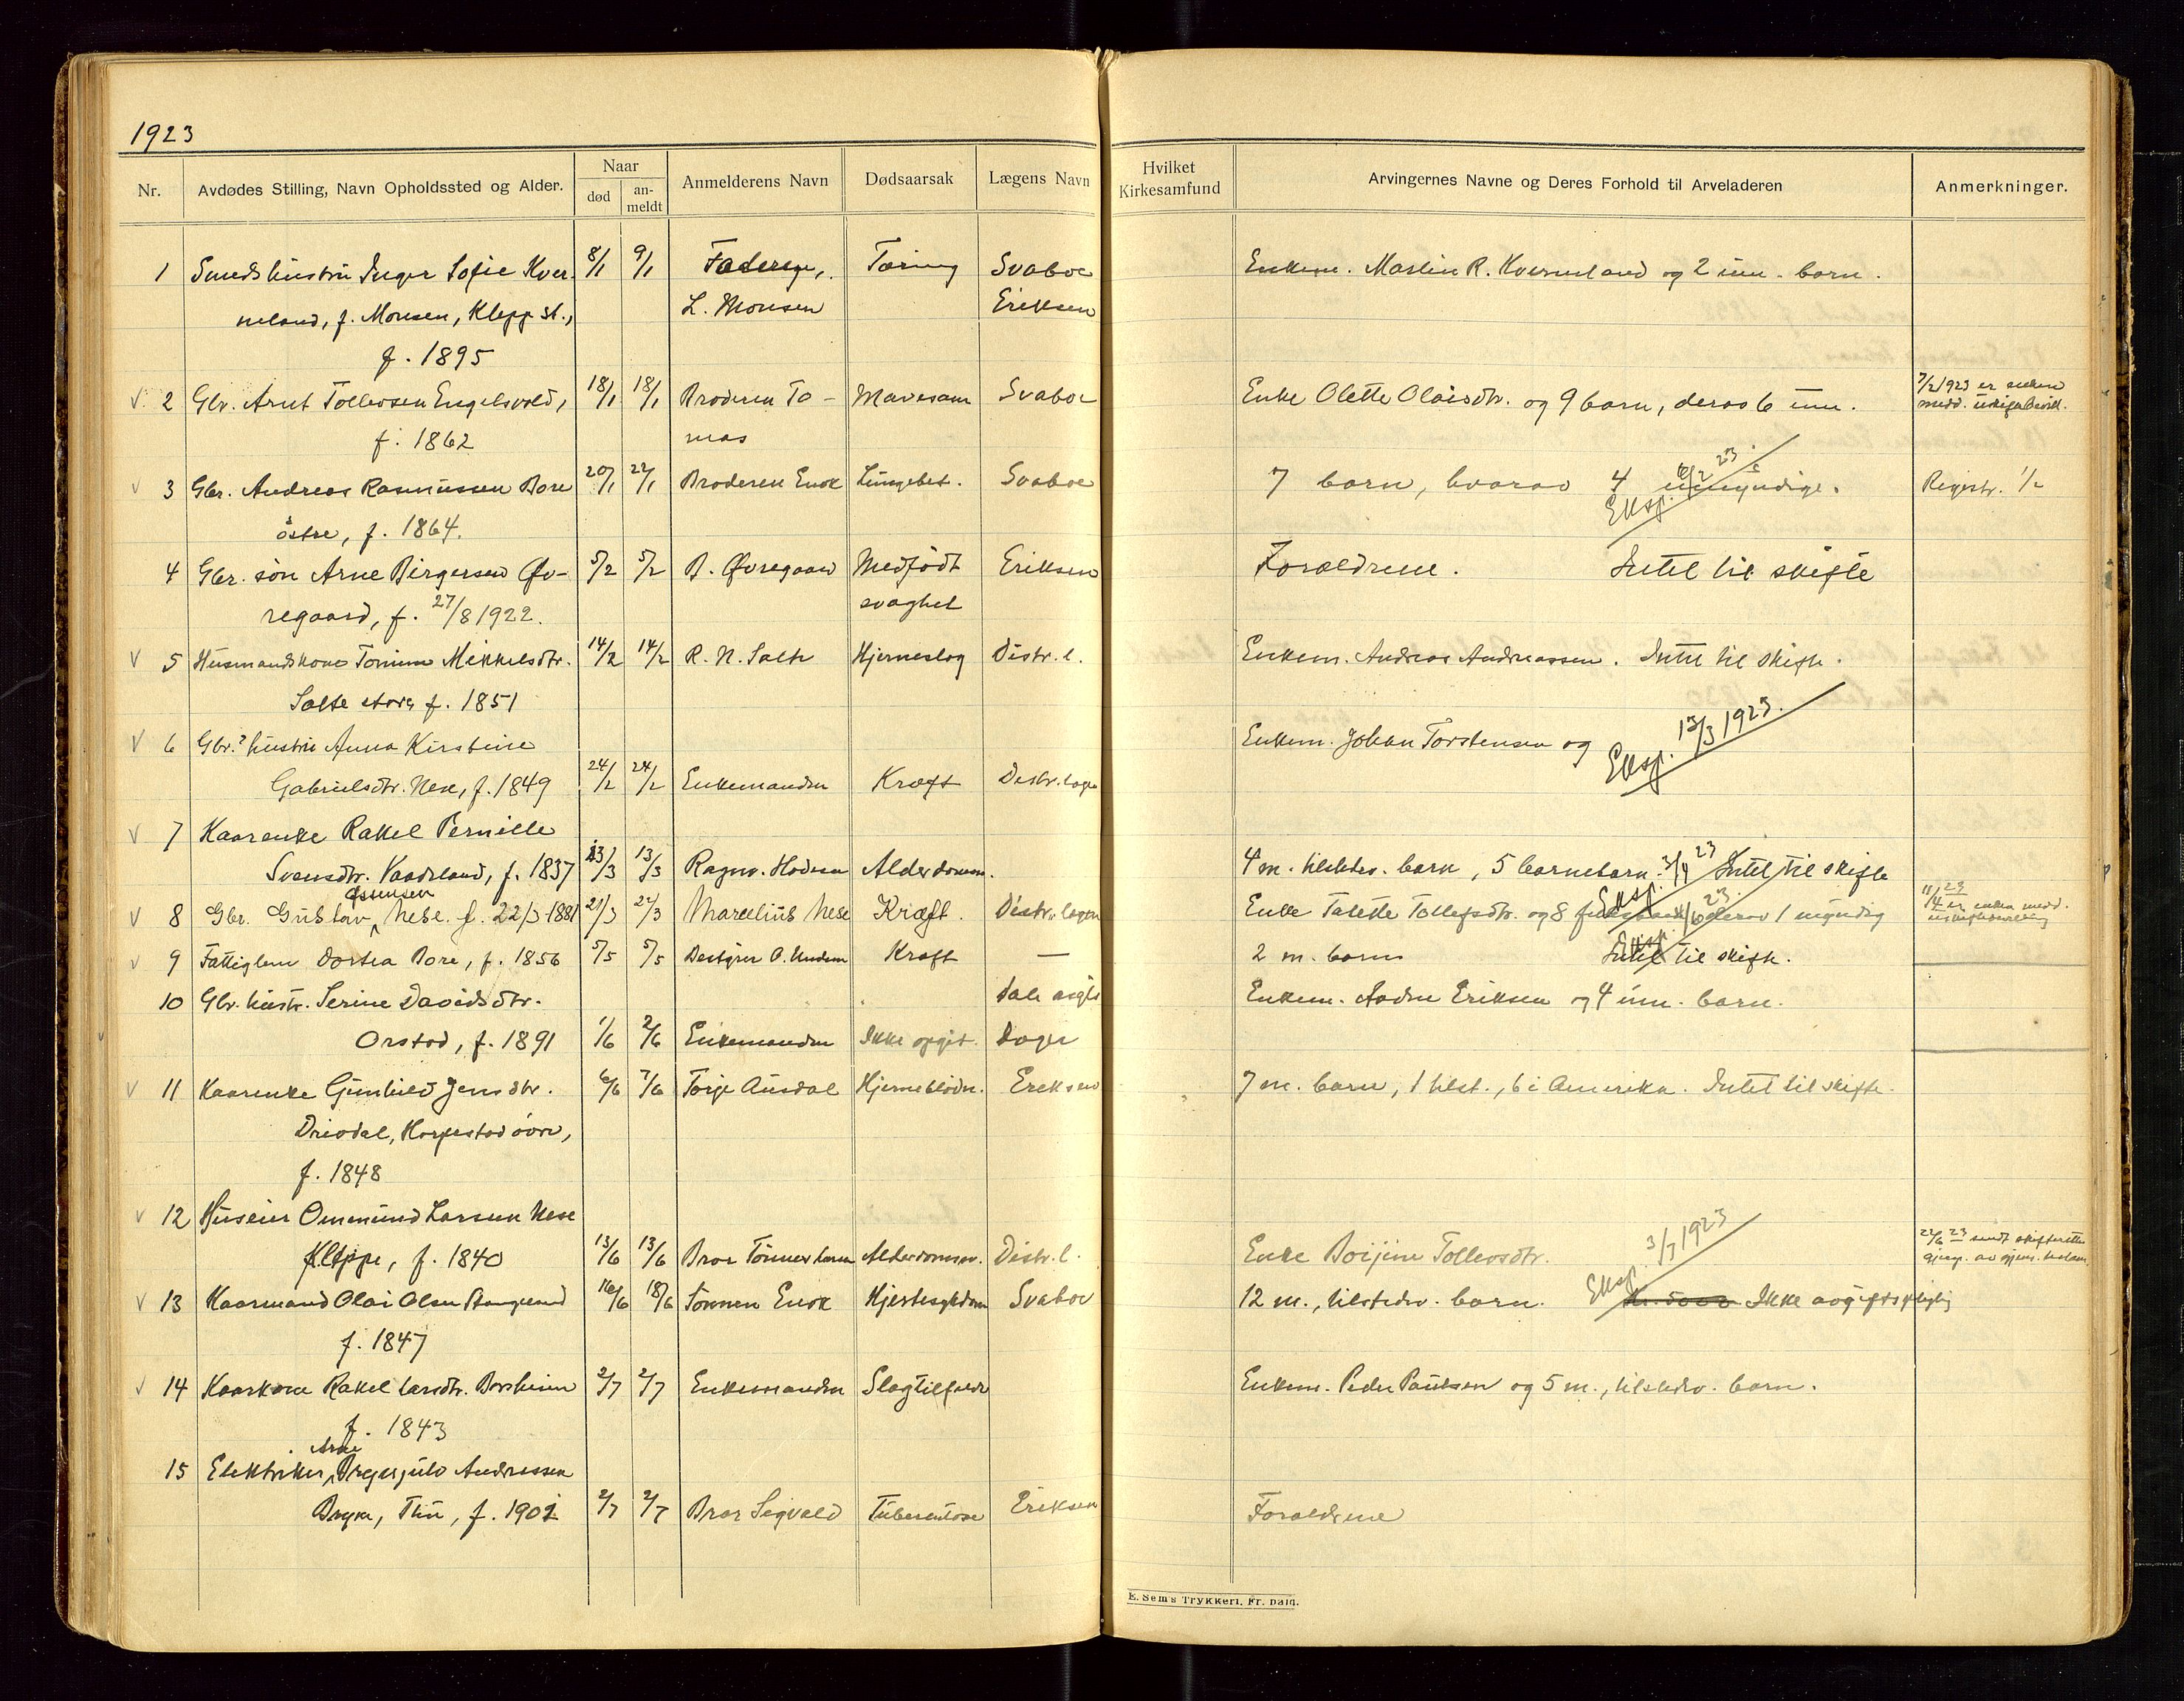 1923
Nr.
Avdødes Stilling, Navn Opholdssted og Alder.
Naar
død
an-
meldt
Anmelderens Navn
Dødsaarsak
Lægens Navn
Hvilket
Kirkesamfund
Arvingernes Navne og Deres Forhold til Arveladeren
Anmerkninger.
1 Smedshustru Inger Sofie Kver- 8/1 9/1 Tæring Svaboe Enkem. Martin R. Kverneland og 2 um. barn.
neland, f. Monsen, Klepp st., L. Monsen Eriksen
f. 1895
2 Gbr. Arnt Tollevsen Engelsvold, 18/1 18/1 Broderen To- Mavesaar Svaboe Enke Olette Olaisdtr. og 9 barn, derav 6 um. 7/2 1923 er enken
f. 1862 mas medd.
3 Gbr. Andreas Rasmussen Bore 20/1 22/1 Broderen Enok Lungebet. Svaboe 7 barn, hvorav 4 umyndige. Registr. 1/2
østre, f. 1864. Eksp. 6/2 23
4 Gbr. søn Arne Birgersen Øv- 5/2 5/2 B. Øvregaard Medfødt Eriksen Forældrene. Intet til skifte
regaard, f. 27/8 1922. svaghet
5 Husmandskone Tonine Mikkelsdtr. 14/2 14/2 R. N. Salte Hjerneslag Distr. l. Enkem. Andreas Andreassen. Intet til skifte.
Salte store f. 1851
6 Gbr.? hustru Anna Kirstine Enkem. Johan Torstensen og Eksp. 13/3 1923.
Gabrielsdtr. Nese, f. 1849 24/2 24/2 Enkemanden Kræft Distr. lægen
7 Kaarenke Rakel Pernille
Svensdtr. Vaadeland, f. 1837 13/3 13/3 Ragnv. Hodnen Alderdomsv. 4 m. tilstedev. barn, 5 barnebarn. Eksp. 3/4 23 Intet til skifte
8 Gbr. Gustav Assensen Nese f. 22/3 1881 21/3 22/3 Marcelius Nese Kræft. Distr. lægen Enke Talette Tollefsdtr. og 8 derav 1 myndig 11/4 23 er enken medd.
Eksp. 4/6 23.
9 Fattiglem Dortea Bore, f. 1856 5/5 5/5 Bestyrer O. Undem Kræft — 2 m. barn Intet til skifte.
10 Gbr. hustr. Serine Davidsdtr. Enkem. Andre Eriksen og 4 um. barn.
Orstad, f. 1891 1/6 2/6 Enkemanden Ikke opgit.
11 Kaarenke Gunhild Jensdtr. 6/6 7/6 Torje Ausdal Hjerneblødn. Eriksen 7 m. barn, 1 tilst., 6 i Amerika. Intet til skifte.
Drivdal, Horpestad øvre,
f. 1848
12 Huseier Ommund Larsen Nese
Kleppe, f. 1840 13/6 13/6 Bror Tønnes Larsen Alderdomsv. Distr. l. Enke Boijine Tollevsdtr. Eksp. 3/7 1923 22/6 23 sendt skifteretten
13 Kaarmand Olai Olsen Stangeland 16/6 18/6 Sønnen Enok Hjertesykdom Svaboe 12 m., tilstedev. barn. Ikke avgiftspligtig
f. 1847
14 Kaarkone Rakel Larsdtr. Borsheim 2/7 2/7 Enkemanden Slagtilfælde Enkem. Peder Paulsen og 5 m., tilstedev. barn.
f. 1843
15 Elektriker Arne Andreassen
Bryne, Thu, f. 1902 2/7 2/7 Bror Sigvald Tuberkulose Eriksen Forældrene
E. Sem's Trykkeri, Fr. hald.